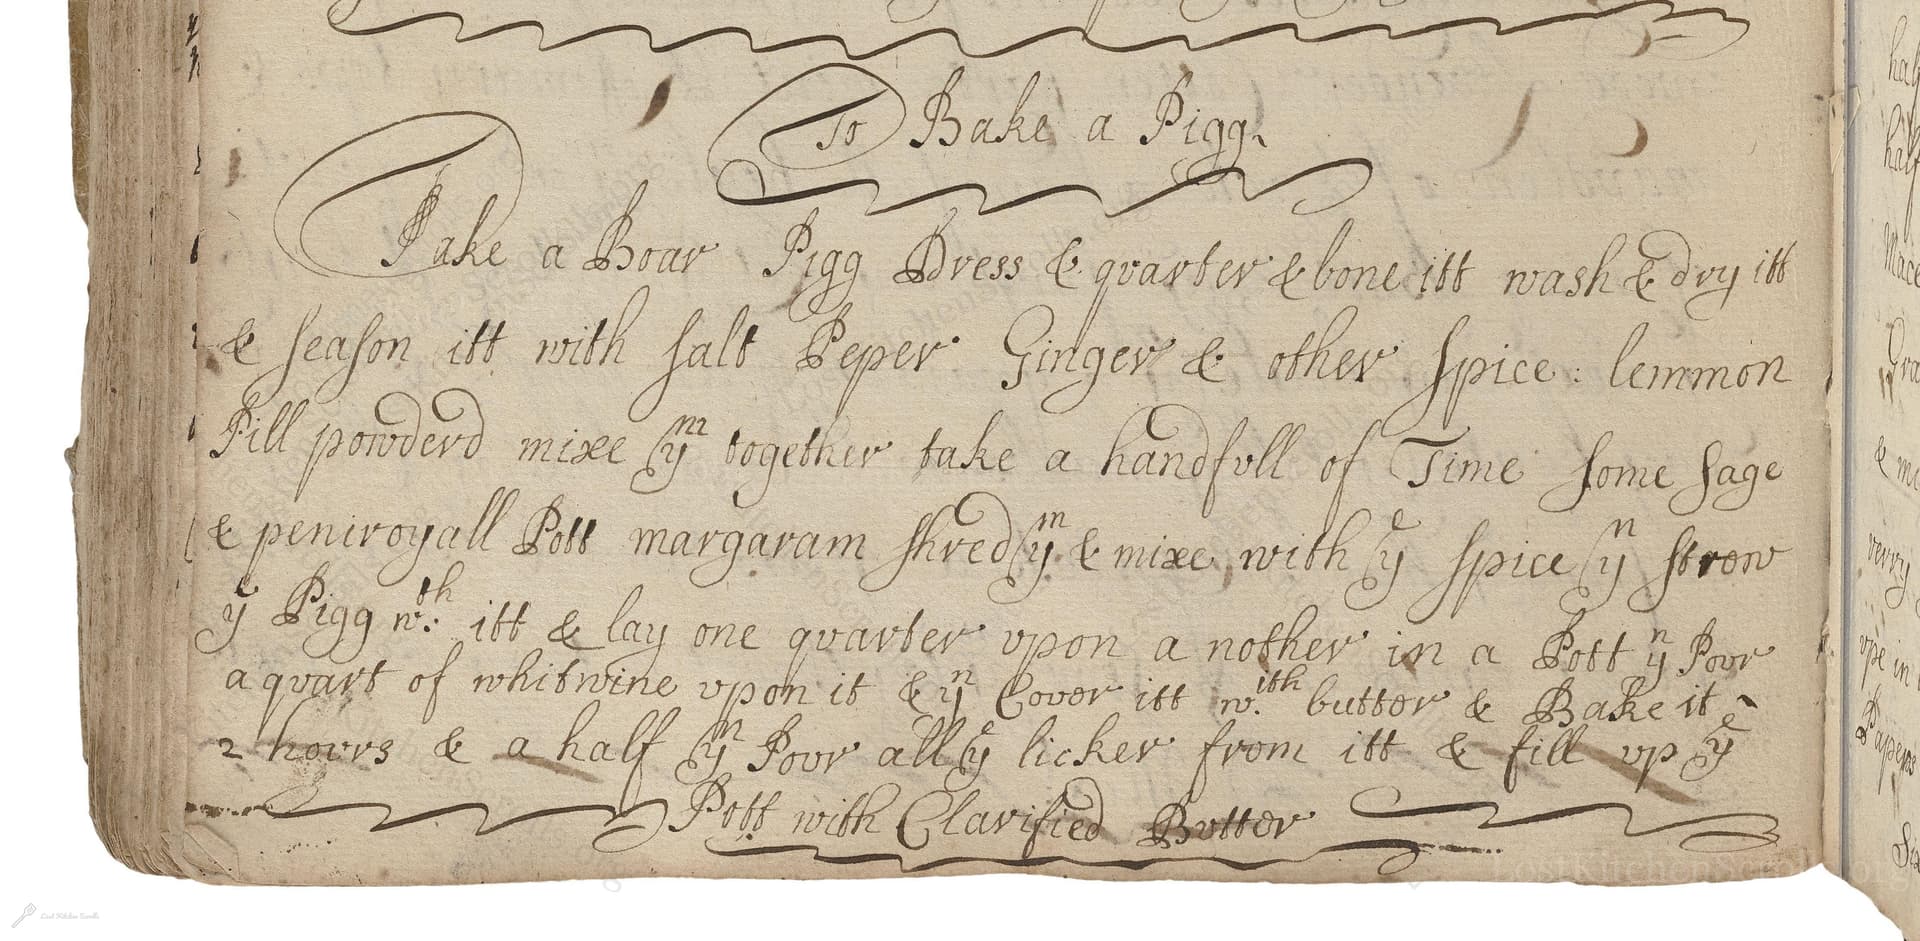 To Bake a Pigg
Take a Boar Pigg Dress & quarter & bone itt wash & dry itt
& season itt with salt Peper Ginger & other spice : lemmon
Pill powderd mixe ym together take a handfull of Time some sage
& peniroyall Pott margaram shred ym & mixe with ye spice yn strow
ye Pigg wth itt & lay one quarter vpon a nother in a Pott yn Povr
a qvart of whitwine vpon it & yn Cover itt with butter & Bake it
2 hovrs & a half yn Povr all ye licker from itt & fill vp ye
Pott with Clarified Butter
LostKitchenScrolls.org
Lost Kitchen Scrolls